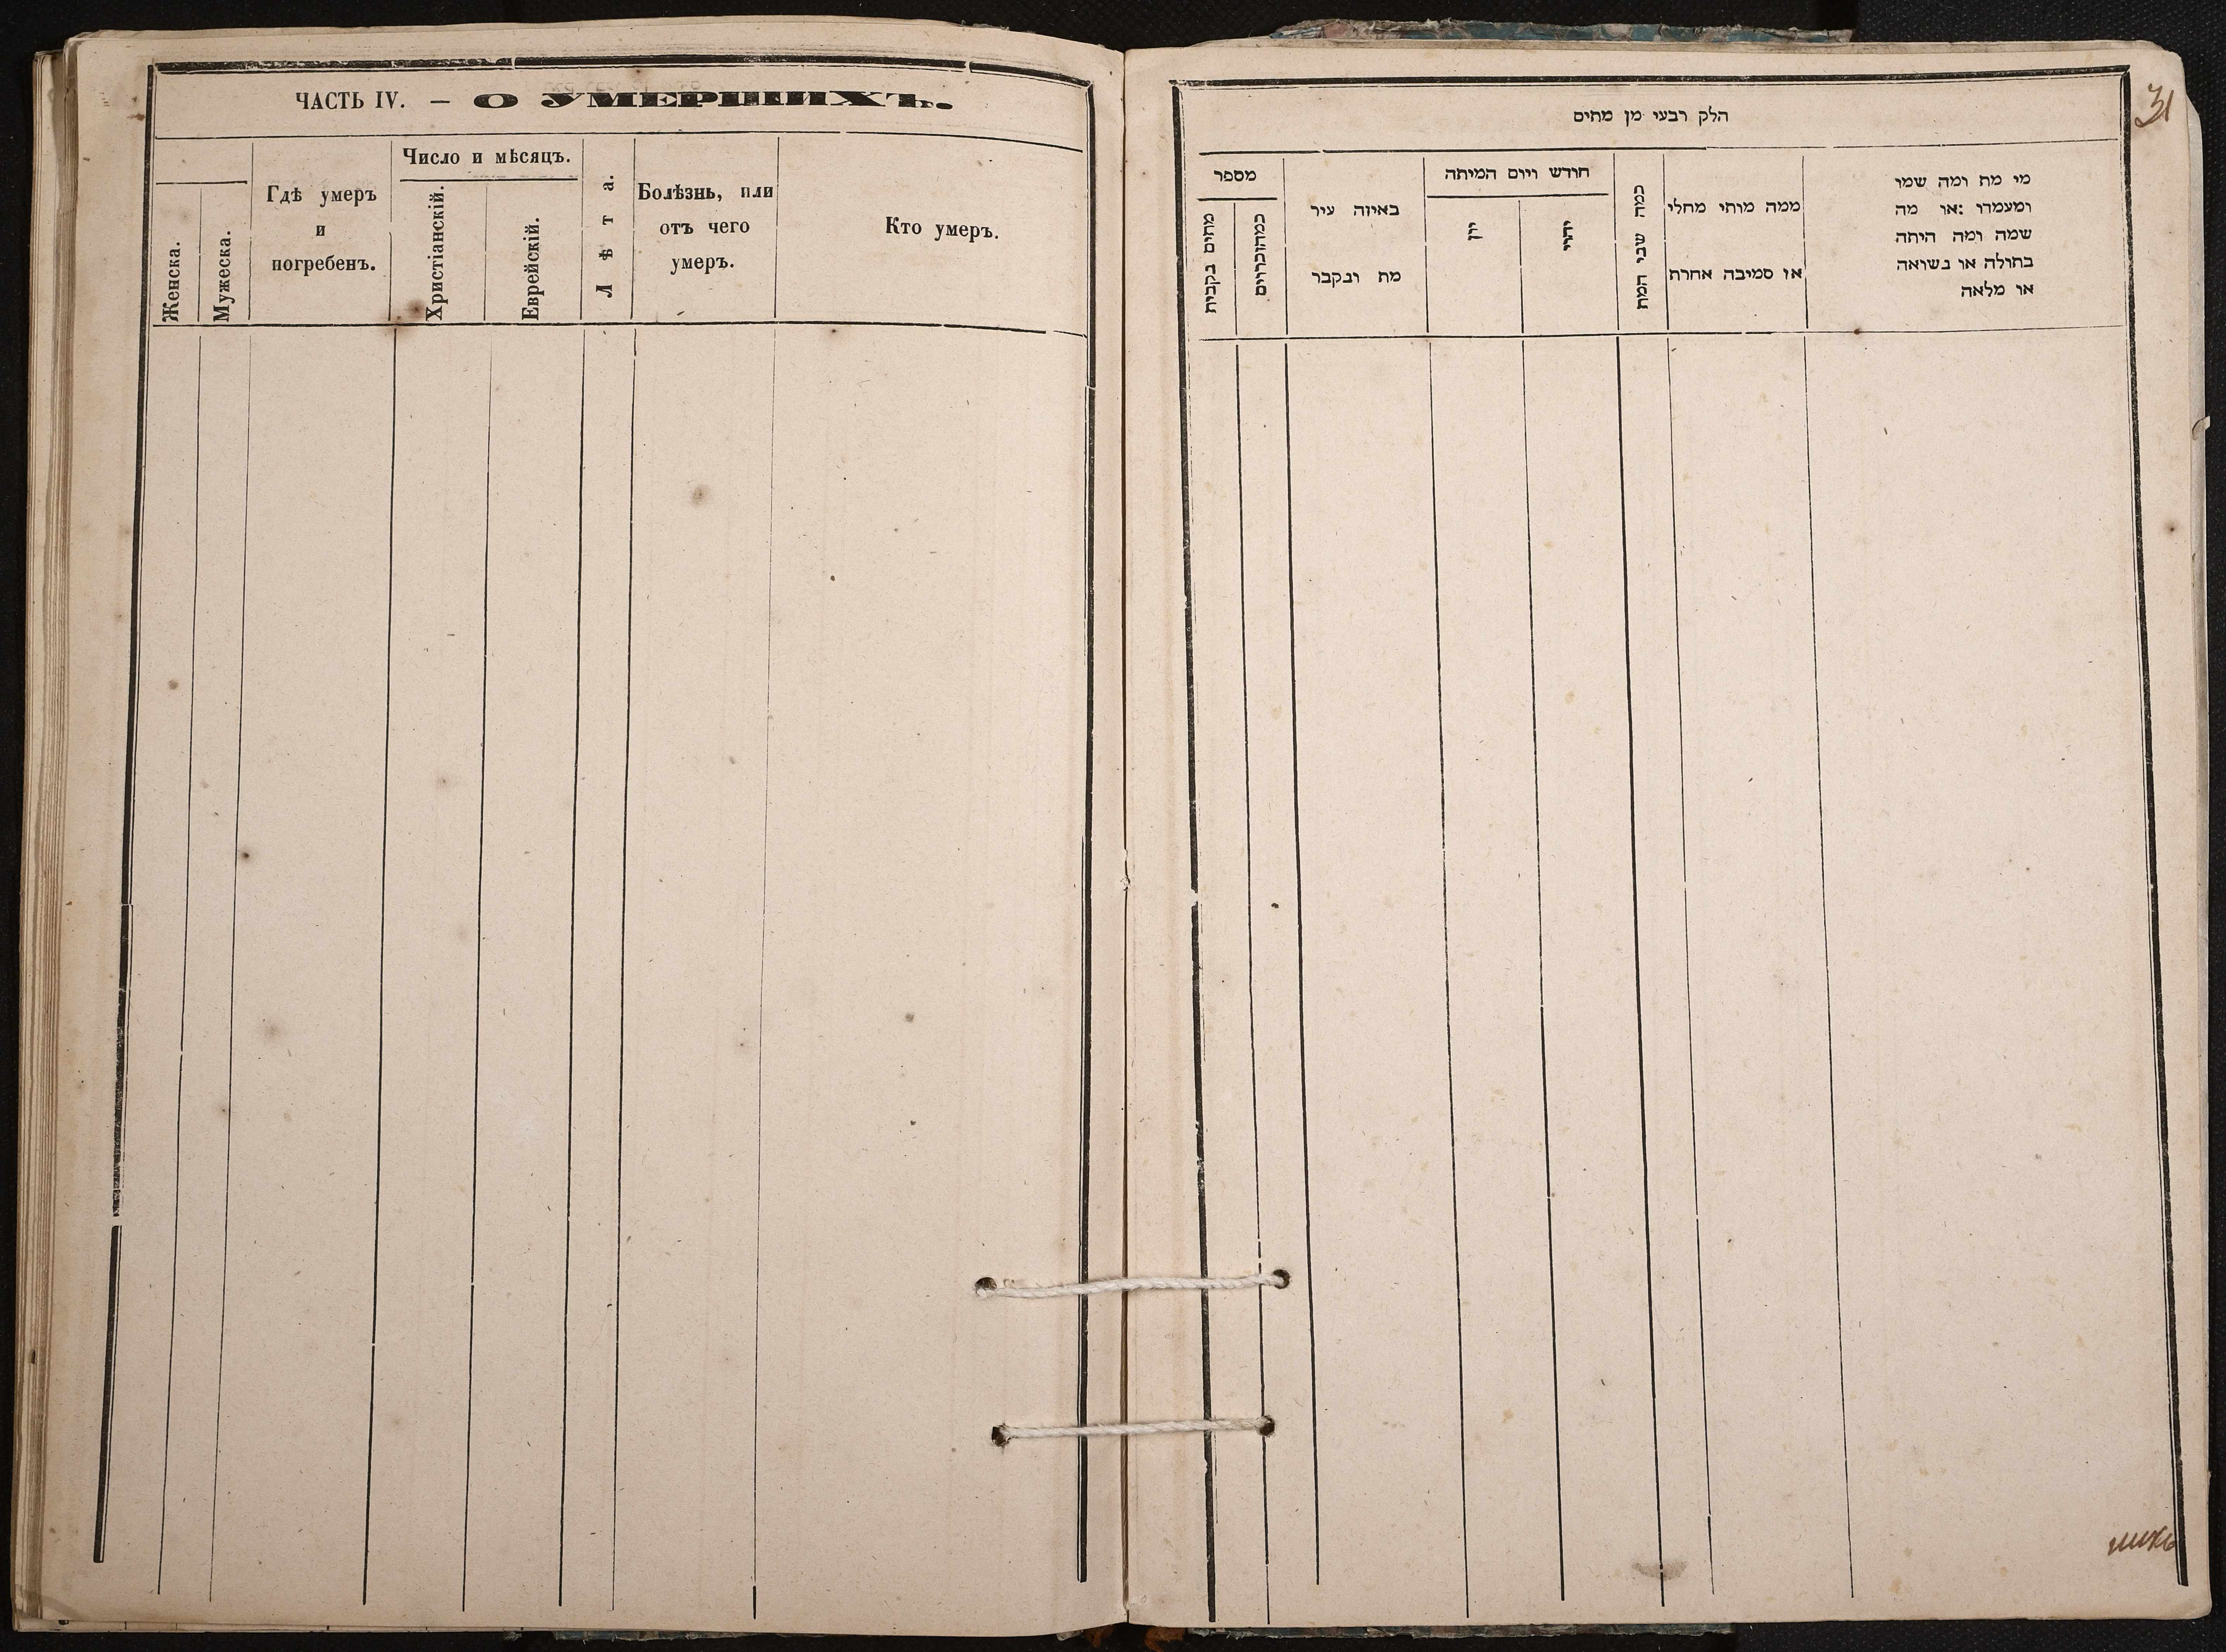 ЧАСТЬ IV. — О УМЕРШИХЪ.
Женска.
Мужеска.
Гдѣ умеръ
и
погребенъ.
Число и мѣсяцъ.
Христіанскій.
Еврейскій.
Лѣта.
Болѣзнь, или
отъ чего
умеръ.
Кто умеръ.
31
הלק רבעי מן מתים
מי מת ומה שמו
ומעמדו :או מה
שמה ומה היתה
בתולה או נשואה
או מלאה
ממה מותי מחלי
או סמיבה אחרת
כמה שני המת
חודש ויום המיתה
באיזה עיר
מת ונקבר
מספר